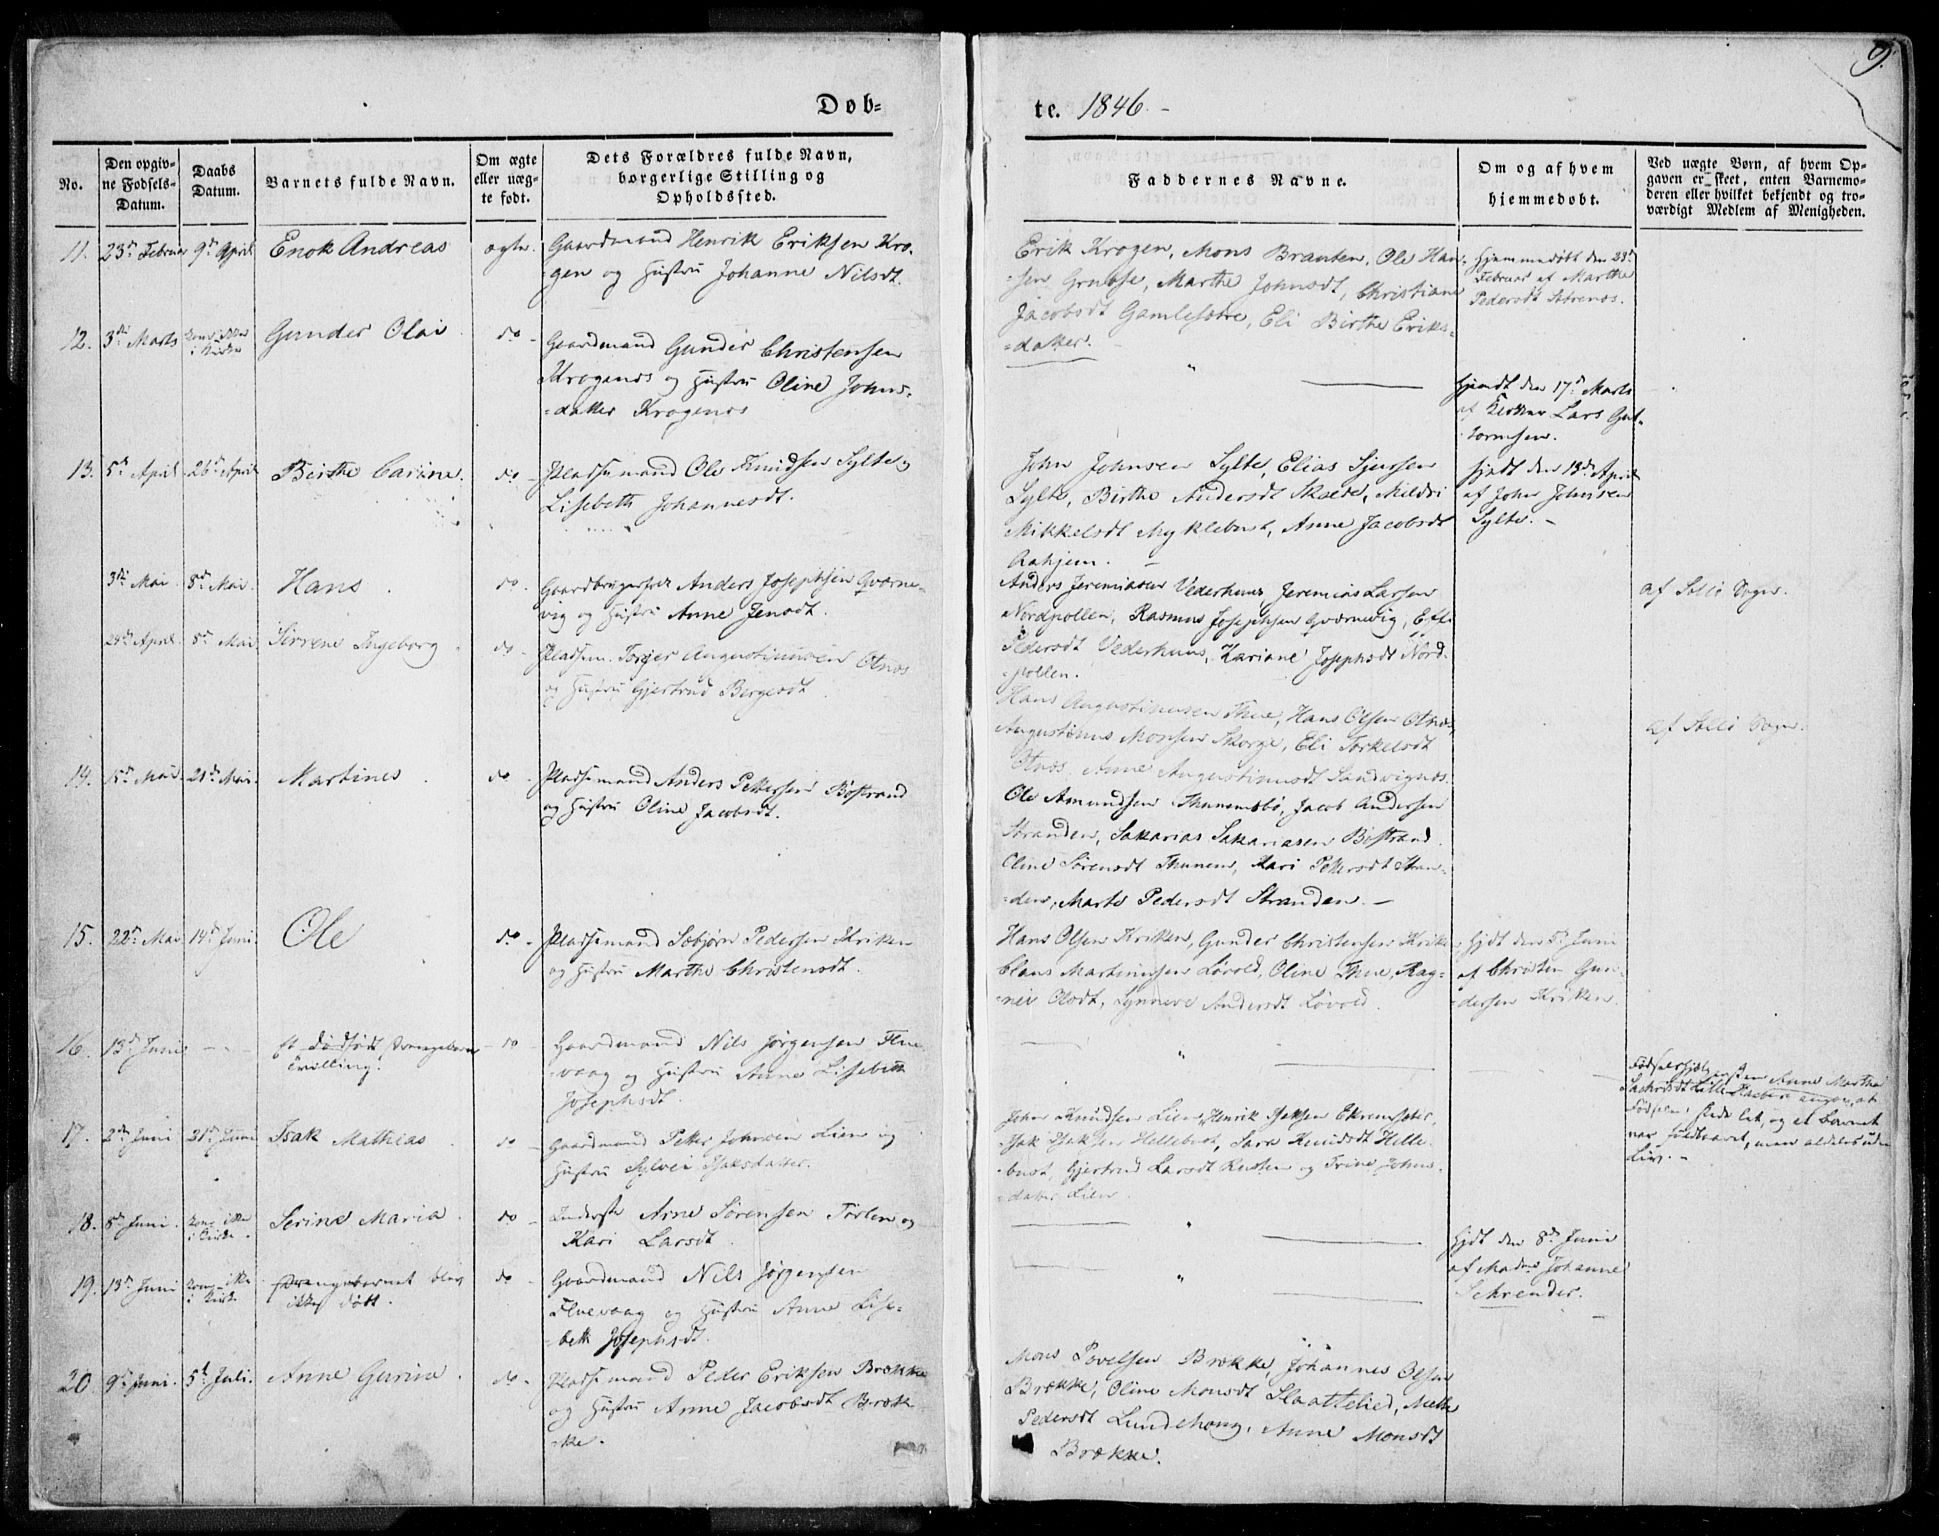 9.
Døb-
te. 1846.-
No.
Den opgiv-
ne Fødsels-
Datum.
Daabs
Datum.
Barnets fulde Navn.
Om ægte
eller uæg-
te født.
Dets Forældres fulde Navn,
borgerlige Stilling og
Opholdssted.
Faddernes Navne.
Om og af hvem
hjemmedøbt.
Ved uægte Børn, af hvem Op-
gaven er skeet, enten Barnemo-
deren eller hvilket bekjendt og tro-
værdigt Medlem af Menigheden.
11. 23de Februar 9de April Enok Andreas ægte.
Gaardmand Henrik Eriksen Kro-
gen og Hustru Johanne Nilsdt.
Erik Krogen, Mons Brauten, Ole Han-
sen Grubse, Marthe Johnsdt, Christiane
Jacobsdt Gamlesætre, Eli Birthe Eriks-
=datter.
Hjemmedøbt den 23de
Februar af Marthe
Pedersdt
12. 3die Marts kom ikke
i Kirke
Gunder Olai do
Gaardmand Gunder Christensen
Krogenæs og Hustru Oline Johns-
=datter Krogenæs
"
Hjmdt den 17de Marts
af Kirkesr Lars Gut-
tormsen.
13. 5te April 26de April Birthe Carine. do
Pladsemand Ole Knudsen Sylte og
Lisebeth Johannesdt.
John Johnsen Sylte, Elias Sjursen
Sylte, Birthe Andersdt Skaede, Mildri
Mikkelsdt Myklebust, Anne Jacobsdt
Aahjem.
Hjmdt den 13de April
af John Johnsen
Sylte. -
3die Mai 8de Mai. Hans. do
Gaardbrugerfolk Anders Josephsen Qværne-
vig og Hustru Anne Jensdt.
Anders Jeremiasen Vederhuus, Jeremias Larsen
Nordpollen, Rasmus Josephsen Qværnevig,
Pedersdt Vederhuus, Kariane Josephsdt Nord-
-pollen.
af Sellø Sogn.
April. 8de Mai Sirrene Ingeborg do
Pladsem. Torger Augustinusen Otnæs
og Hustru Gjertrud Bergesdt.
Hans Augustinusen Thue, Hans Olsen Otnæs,
Augustinus Monsen Skorge, Eli Torkelsdt
Otnæs, Anne Augustinusdt Sandvignæs.
af Sellø Sogn.
14. 15de Mai. 21de Mai. Martines. do
Pladsemand Anders Pettersen Bøstrand
og Hustru Oline Jacobsdt.
Ole Amundsen Thunemsbø, Jacob Andersen
Stranden, Sakarias Sakariasen Bøstrand.
Oline Sørensdt Thunem, Kari Pettersdt Stran-
=den, Marte Pedersdt Stranden. -
15. 22de Mai 14de Juni. Ole do
Pladsemand Sæbjørn Pedersen Kriken
og Hustru Marthe Christensdt.
Hans Olsen Kriken, Gunder Christensen Krike
Claus Martinusen Løvold, Oline Thue, Rag-
-nei Olsdt, Synneve Andersdt Løvold.
Hjdt den 5te Juni
af Christen Gun-
dersen Kriken.
16. 13de Juni
et dødfødt Drengebarn
Tvilling.
do
Gaardmand Nils Jørgensen Flue-
=vaag og Hustru Anne Lisebett
Josephsdt.
"
Fødselshjelpersken Anne Martha
Sachrisdt Lille angav, at
Fødselen skede let, og at Barnet
var fuldbaaret, men aldeles uden
Liv. -
17. 2de Juni 21de Juni Isak Mathias do
Gaardmand Petter Johnsen Lien og
Hustru Sylvei Isaksdatter.
John Knudsen Lien, Henrik Isaksen Ekremsæter,
Isak Isaksen Hellebust, Sara Knudsdt Helle-
-bust, Gjertrud Larsdt Rusten og Trine Johns-
=datter Lien.
18. 8de Juni. kom ikke
i Kirke.
Serine Maria do
Inderste Arne Sørensen Førlen og
Kari Larsdt.
"
Hjdt den 8de Juni
af Madme Johanne
Schrender.
19. 13de Juni kom ikke
i Kirke
Drengebarnet blev
ikke døbt.
do
Gaardmand Nils Jørgensen
Fluevaag og Hustru Anne Lise-
-bett Josephsdt.
"
20. 9de Juni. 5te Juli. Anne Gurine. do
Pladsemand Peder Eriksen Brække
og Hustru Anne Jacobsdt Bræk-
-ke.
Mons Povelsen Brække, Johannes Olsen
Brække, Oline Monsdt Slaattelied, Mette
Pedersdt Lundehaug, Anne Monsdt
Brække.